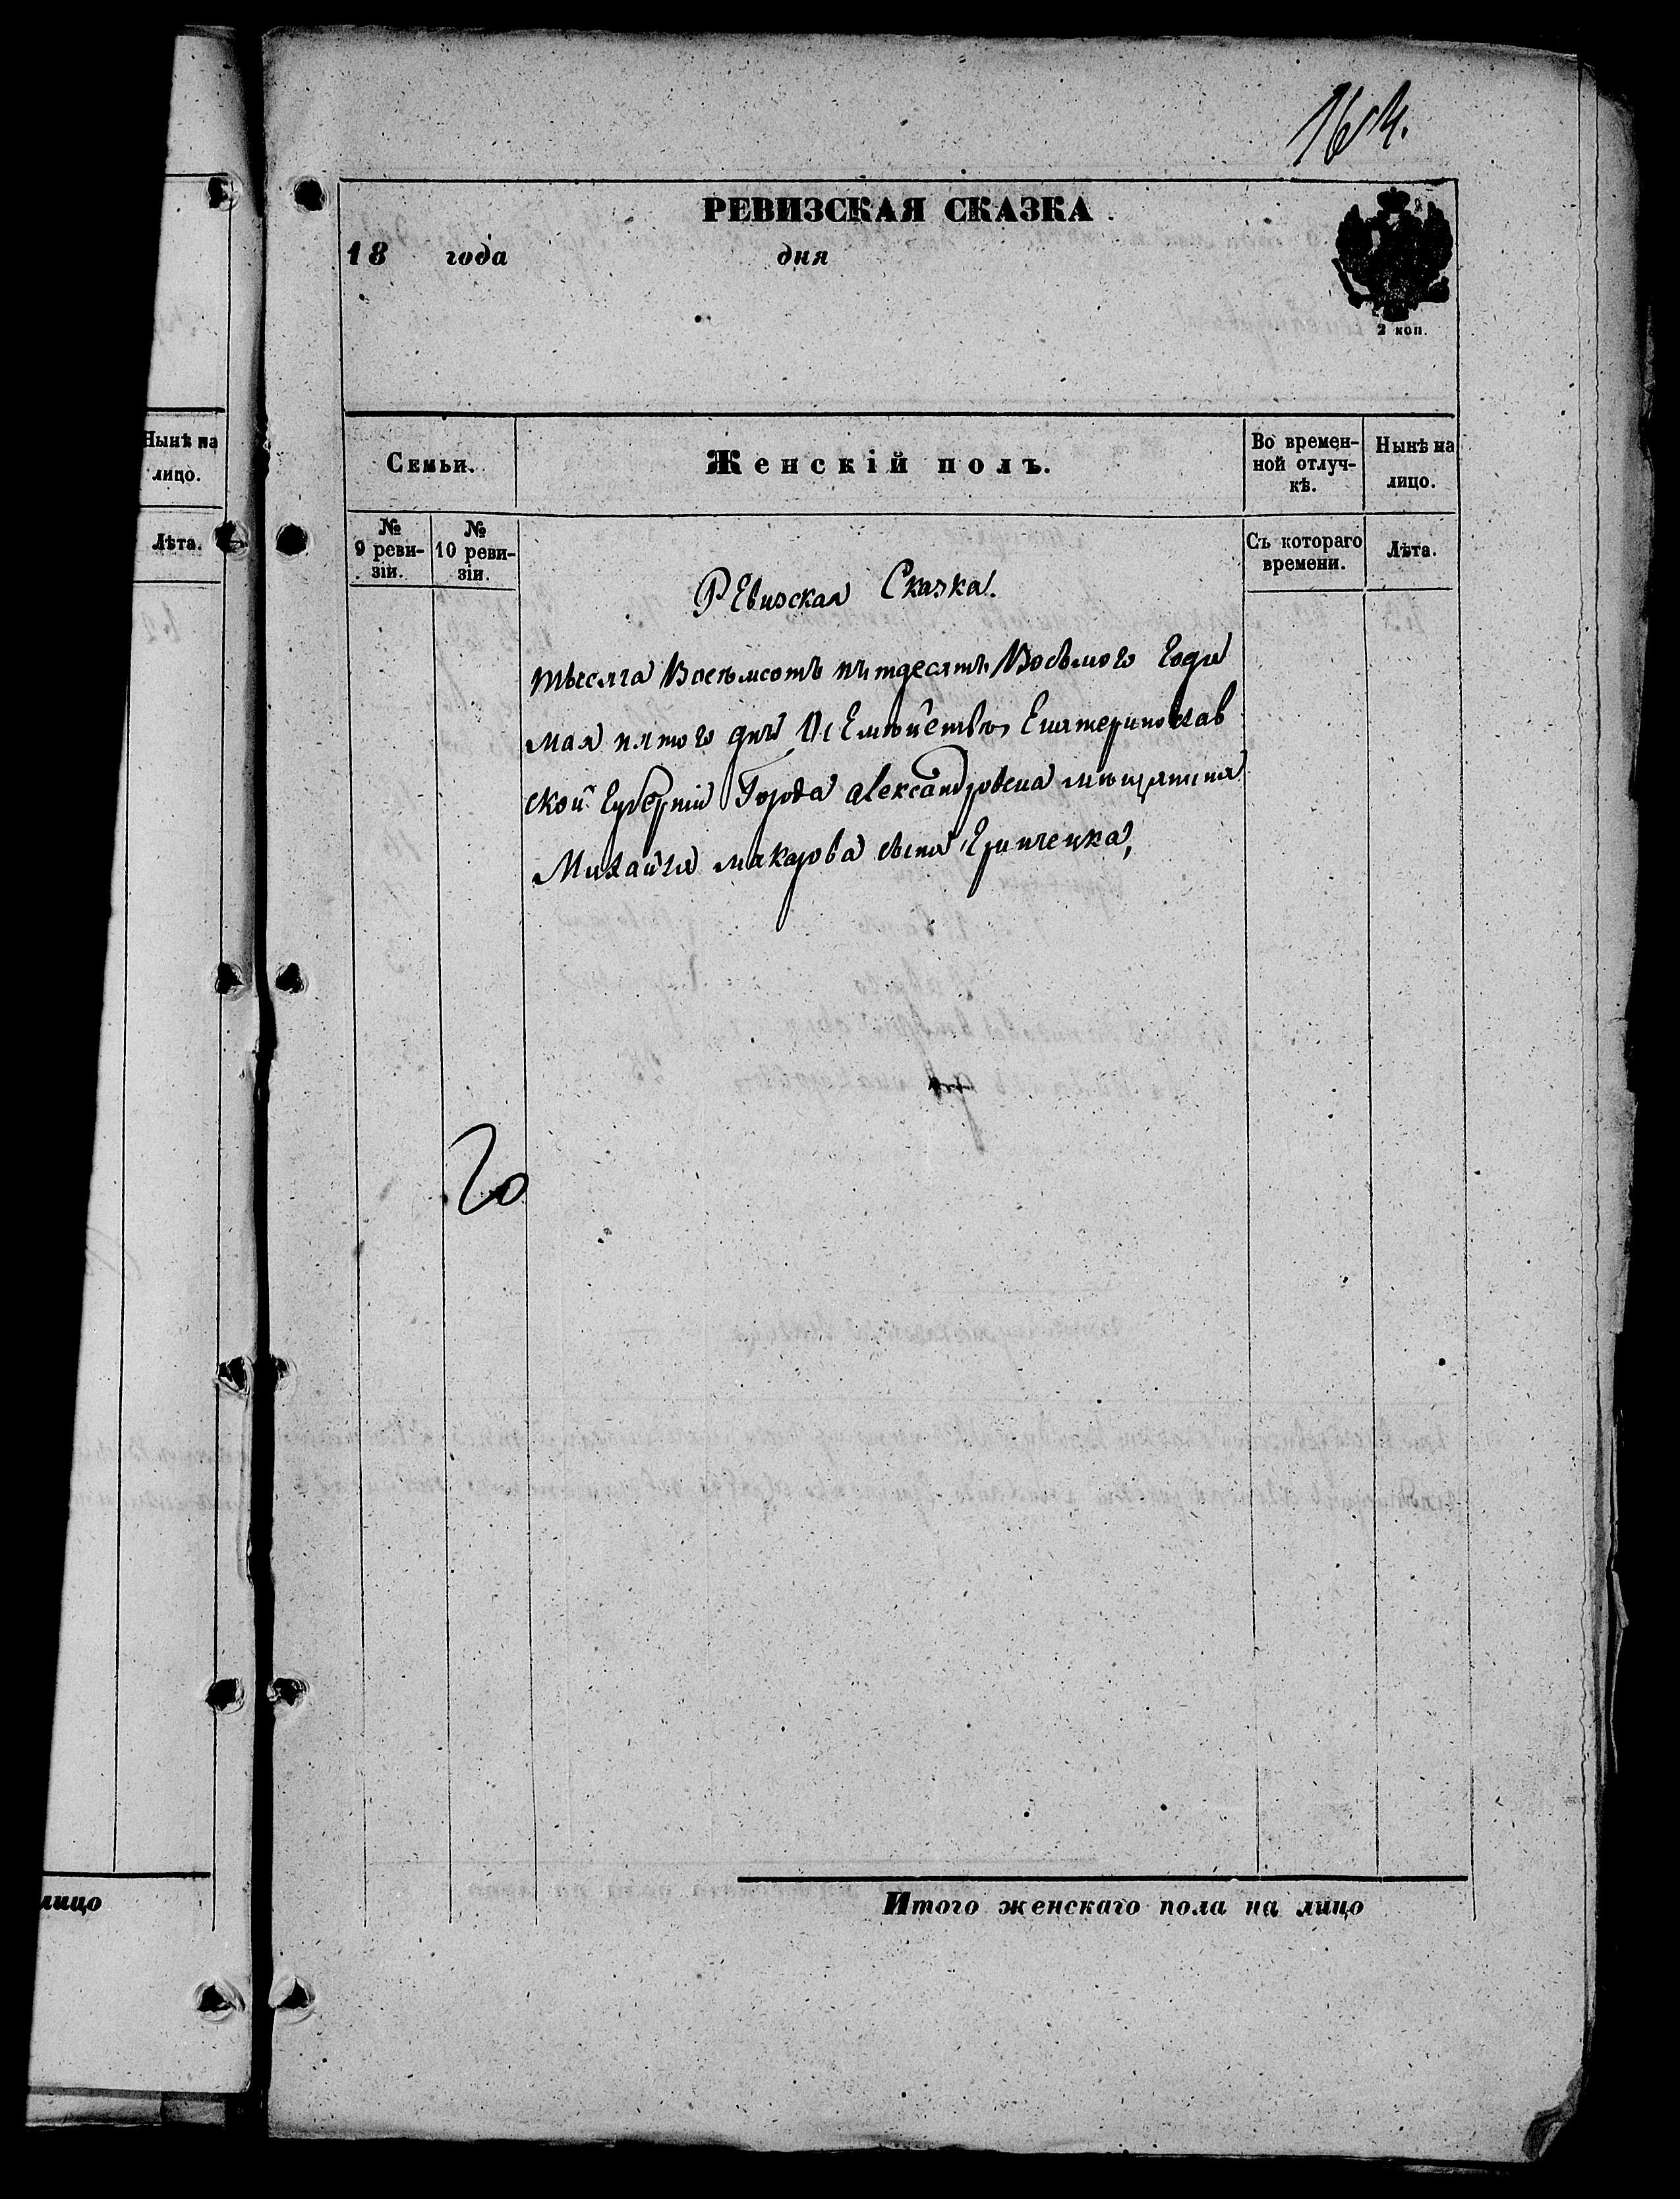 164.
РЕВИЗСКАЯ СКАЗКА.
18 года дня
2 коп.
Нынѣ на
лицо.
Лѣта.
Семьи.
Женскій полъ.
Во времен-
ной отлуч-
кѣ.
Нынѣ на
лицо.
№
9 реви-
зіи.
№
10 реви-
зіи.
Съ котораго
времени.
Лѣта.
Ревизская Сказка.
тысяча Восемсотъ пятдесятъ Восьмого года
мая пятого дня Екатеринослав
ской Губерніи Города александровска мещанина
Михайла макарова сына Гринченка,
20
лицо
Итого женскаго пола на лицо